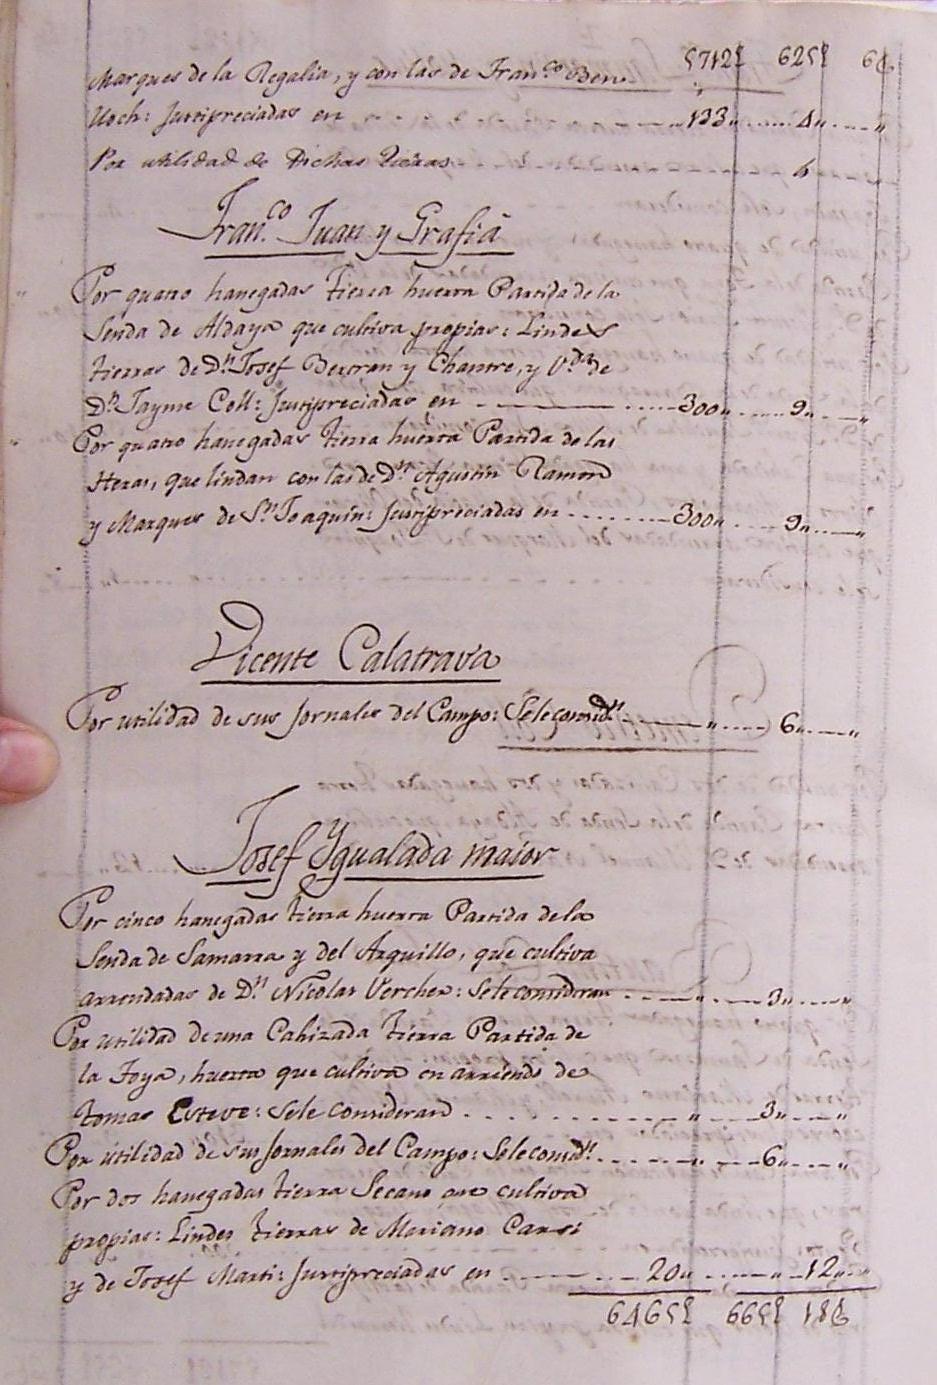 5712 625 6
Marques de la Regalia, y con las de Fran.co Ben
Uoch: Justipreciadas en 133 4 "
Por utilidad de Dichas tierras
Fran.co Juan y Grafiá
Por quatro hanegadas tierra huerta Partida de la
Senda de Aldaya que cultiva propias: Lindes
tierras de D.n Josef Bertran y Chantre, y V.da de
D.n Jayme Coll: Justipreciadas en 300 9 "
Por quatro hanegadas tierra huerta Partida de las
Heras, que lindan con las de D.n Agustin Ramon
y Marques de S.n Joaquin: Justipreciadas en 300 9 "
Vicente Calatrava
Por utilidad de sus Jornales del Campo: Sele consid.n " 6 "
Josef Ygualada maior
Por cinco hanegadas tierra huerta Partida de la
Senda de Samarra y del Arquillo, que cultiva
arrendadas de D.n Nicolas Vercher: Sele consideran " 3 "
Por utilidad de una Cahizada tierra Partida de
la Foya, huerta que cultiva en arriendo de
tomas Esteve: Sele consideran " 3 "
Por utilidad de sus Jornales del Campo: Sele consid.n " 6 "
Por dos hanegadas tierra Secano que cultiva
propias: Lindes tierras de Mariano Carsi
y de Josef Marti: Justipreciadas en 20 " 12 "
6465 665 18